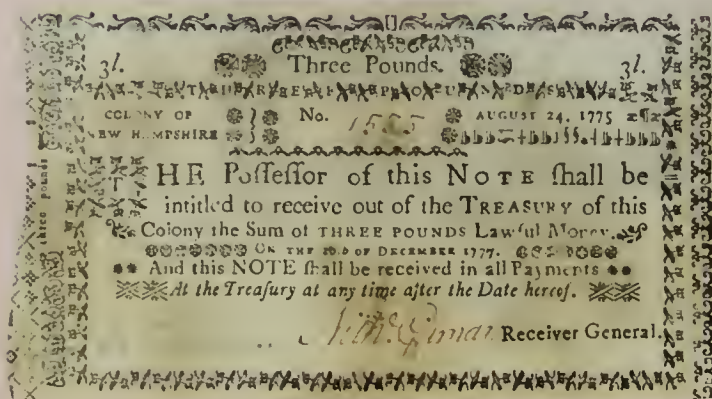 3l. Three Pounds. 3l.
THREE POUNDS
COLONY OF No. AUGUST 24, 1775
NEW HAMPSHIRE
THE Poſſeſſor of this NOTE ſhall be
intitled to receive out of the TREASURY of this
Colony the Sum of THREE POUNDS Lawful Money.
ON THE 20.D OF DECEMBER 1777.
And this NOTE ſhall be received in all Payments
At the Treaſury at any time after the Date hereof.
Receiver General.
three pounds